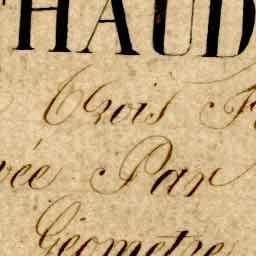 HAUD
Trois F
vée Par
Géometre